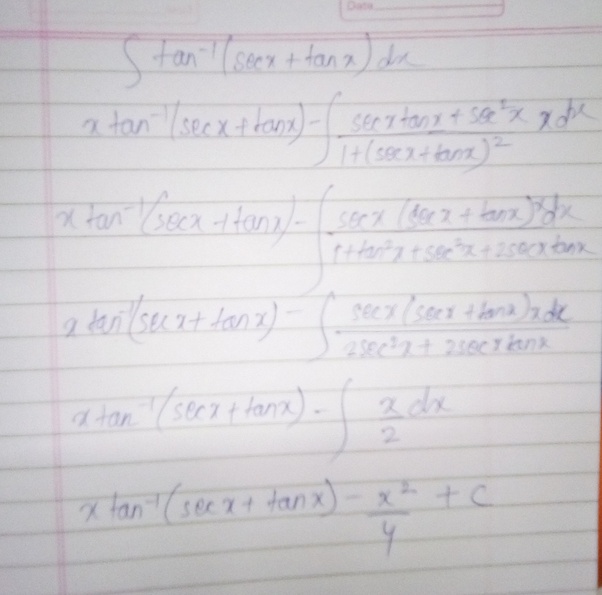 Date
∫ tan⁻¹(secx + tanx) dx
x tan⁻¹(secx + tanx) - ∫ (secx tanx + sec²x)/(1+(secx+tanx)²) x dx
x tan⁻¹(secx + tanx) - ∫ secx (secx + tanx) x dx/(1+tan²x + sec²x + 2secx tanx)
x tan⁻¹(secx + tanx) - ∫ secx (secx + tanx) x dx/(2sec²x + 2secx tanx)
x tan⁻¹(secx + tanx) - ∫ x/2 dx
x tan⁻¹(secx + tanx) - x²/4 + C